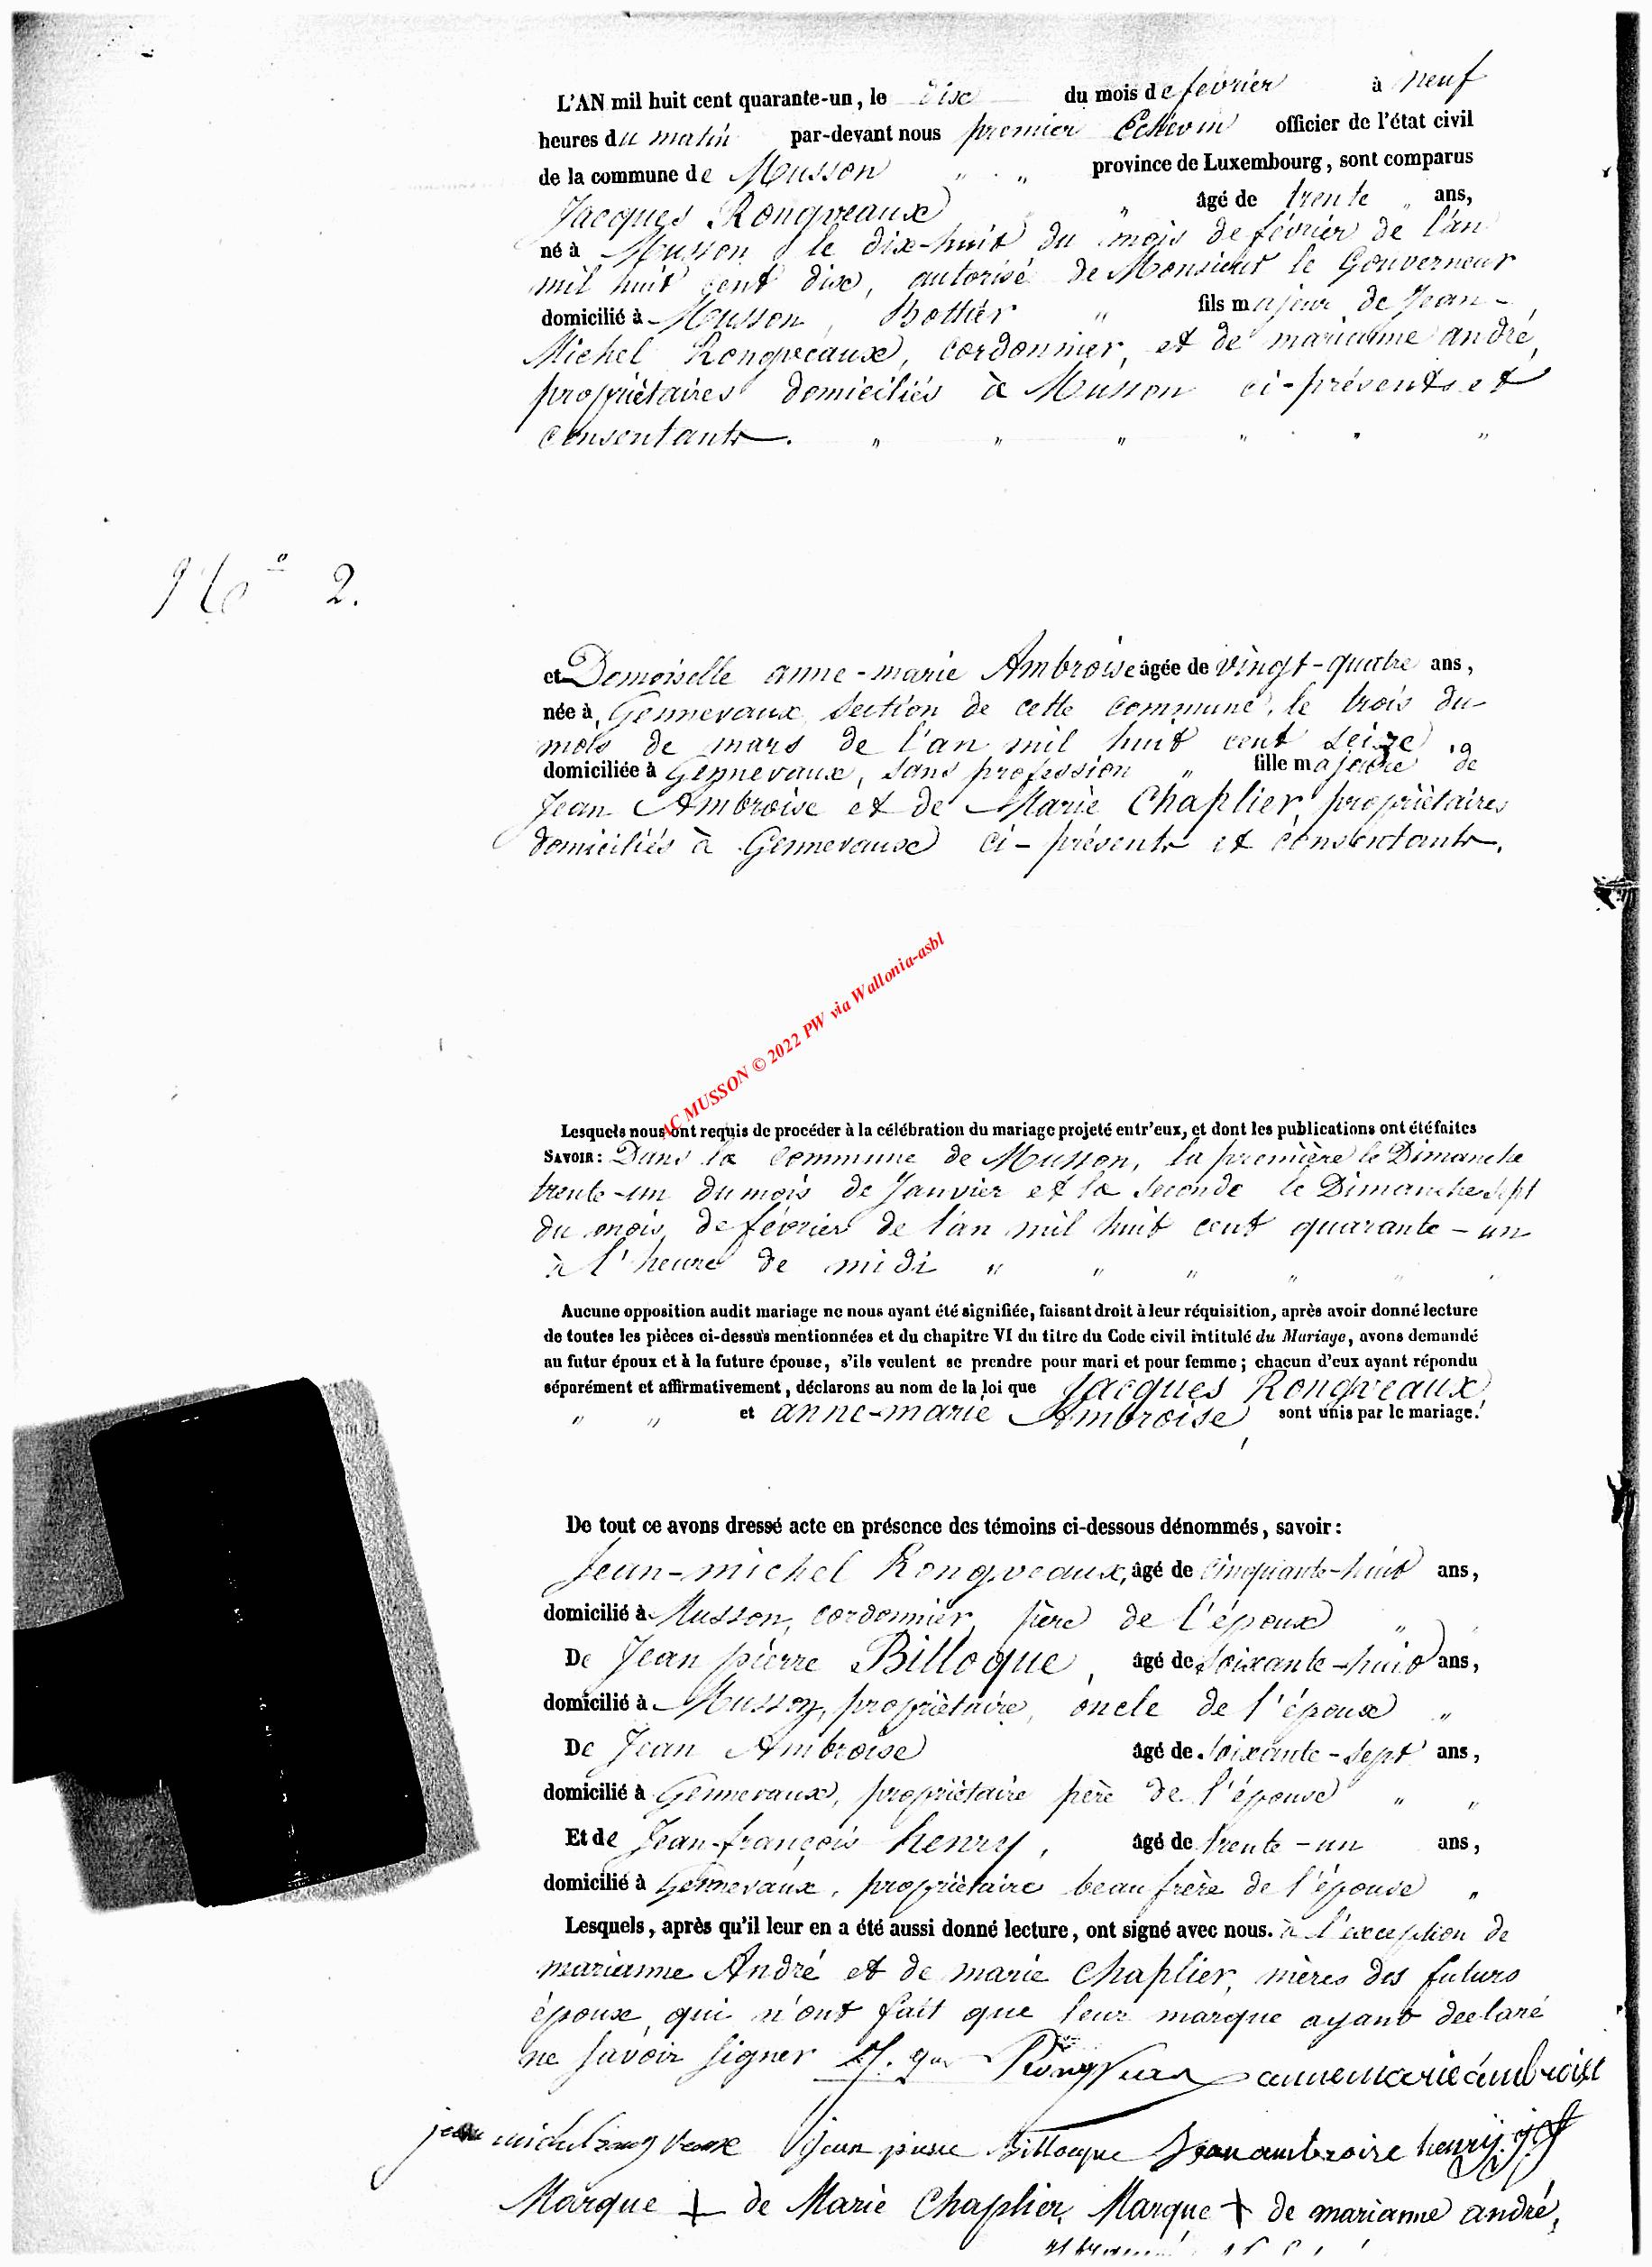 L'AN mil huit cent quarante-un, le dix du mois de février à neuf
heures du matin par-devant nous premier Echevin officier de l'état civil
de la commune de Musson " " province de Luxembourg, sont comparus
Jacques Rongveaux " âgé de trente " ans,
né à Musson le dix-huit du mois de février de l'an
mil huit cent dix, autorisé de Monsieur le Gouverneur
domicilié à Musson, Bottier " fils majeur de Jean-
Michel Rongveaux, cordonnier, et de marianne andré,
propriétaires domiciliés à Musson ci-présents et
consentants. " " " " " "
No 2.
et Demoiselle anne-marie Ambroise âgée de vingt-quatre ans,
née à Gennevaux section de cette commune, le trois du
mois de mars de l'an mil huit cent seize
domiciliée à Gennevaux, sans profession " fille majeure de
Jean Ambroise et de Marie Chaplier, propriétaires
domiciliés à Gennevaux ci-présents et consentants.
AC MUSSON © 2022 PW via Wallonia-asbl
Lesquels nous ont requis de procéder à la célébration du mariage projeté entr'eux, et dont les publications ont été faites
SAVOIR: Dans la commune de Musson, la première le Dimanche
trente-un du mois de Janvier et la seconde le Dimanche sept
du mois de février de l'an mil huit cent quarante-un
à l'heure de midi " " " " " "
Aucune opposition audit mariage ne nous ayant été signifiée, faisant droit à leur réquisition, après avoir donné lecture
de toutes les pièces ci-dessus mentionnées et du chapitre VI du titre du Code civil intitulé du Mariage, avons demandé
au futur époux et à la future épouse, s'ils veulent se prendre pour mari et pour femme; chacun d'eux ayant répondu
séparément et affirmativement, déclarons au nom de la loi que Jacques Rongveaux
" " et anne-marie Ambroise, sont unis par le mariage.
De tout ce avons dressé acte en présence des témoins ci-dessous dénommés, savoir:
Jean-michel Rongveaux, âgé de cinquante-huit ans,
domicilié à Musson, cordonnier père de l'époux "
De Jean pierre Billoque, âgé de soixante-huit ans,
domicilié à Musson, propriétaire, oncle de l'époux "
De Jean Ambroise âgé de soixante-sept ans,
domicilié à Gennevaux, propriétaire père de l'épouse " "
Et de Jean-françois henry, âgé de trente-un ans,
domicilié à Gennevaux, propriétaire beau frère de l'épouse "
Lesquels, après qu'il leur en a été aussi donné lecture, ont signé avec nous. à l'exception de
marianne André et de marie Chaplier, mères des futurs
époux, qui n'ont fait que leur marque ayant declaré
ne savoir signer Rongveaux annemarie ambroise
jean michel rongveaux jean pierre Billoque Jean ambroise henry. j. f
Marque + de Marie Chaplier, Marque + de marianne andré,